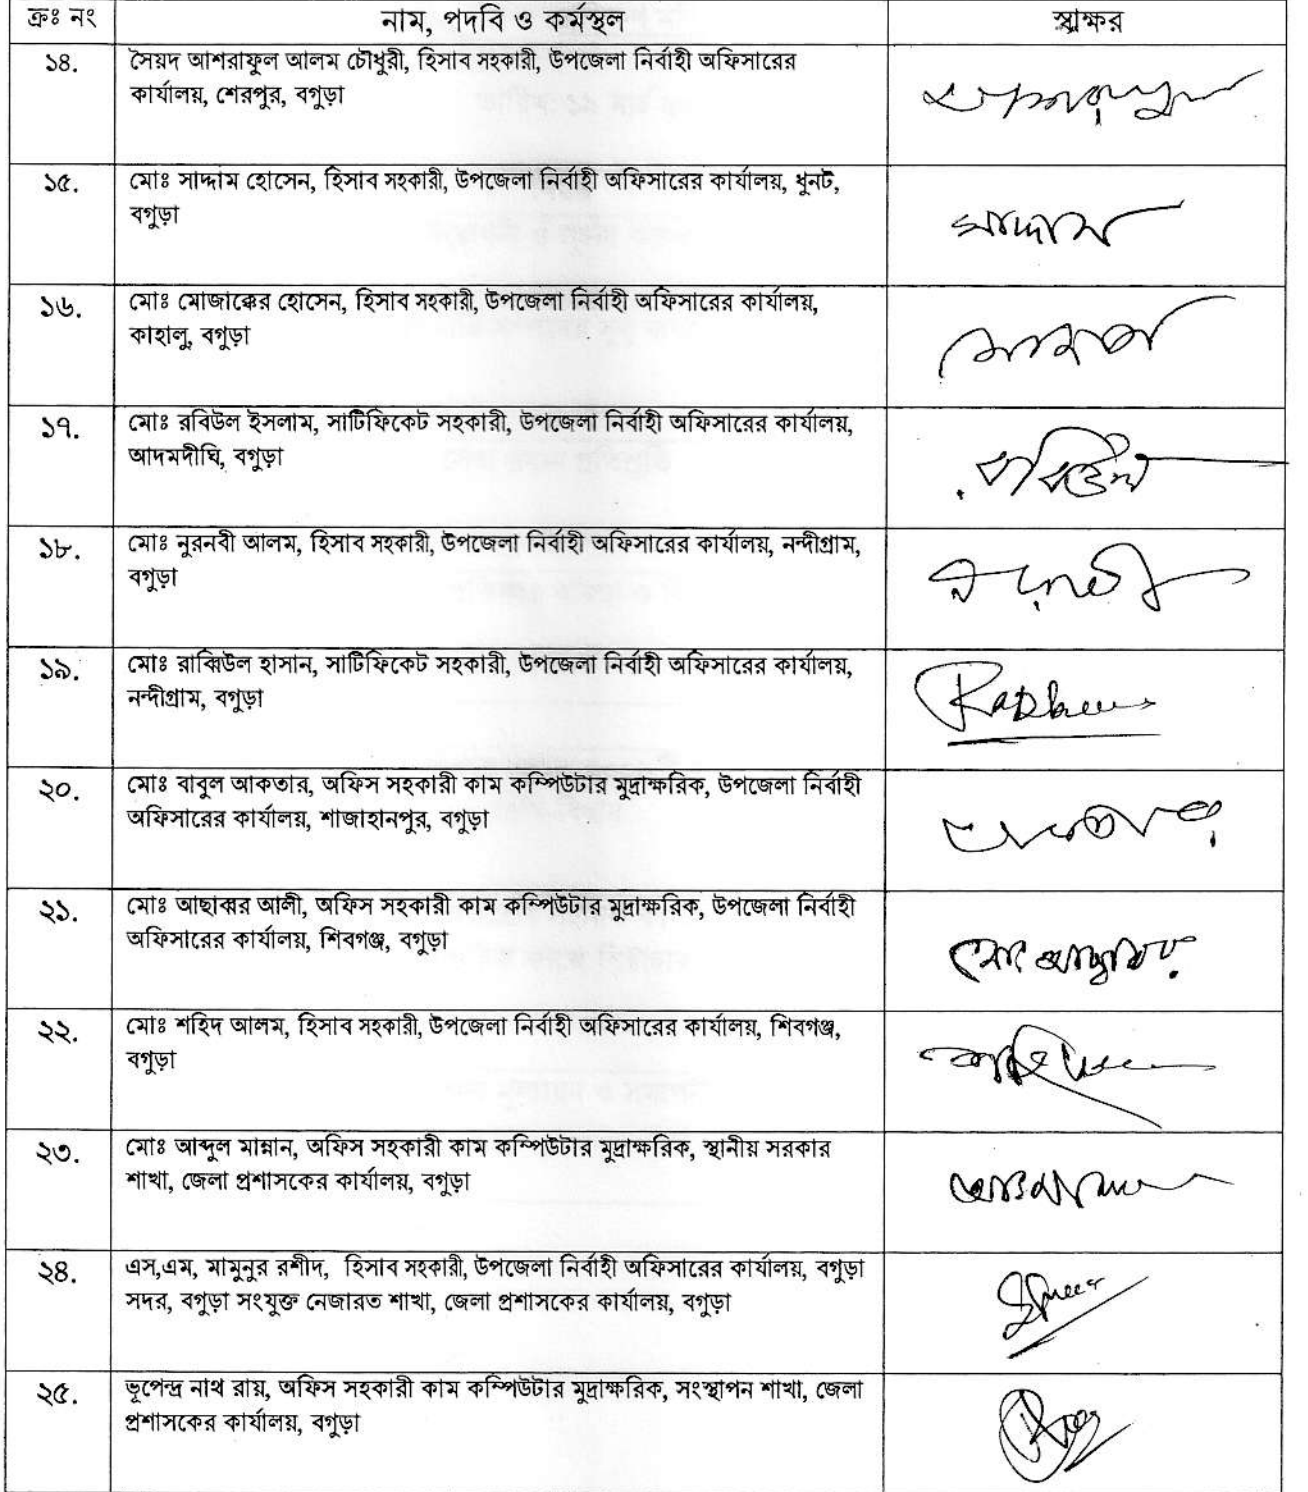 ক্রঃ নং নাম, পদবি ও কর্মস্থল স্বাক্ষর
১৪. সৈয়দ আশরাফুল আলম চৌধুরী, হিসাব সহকারী, উপজেলা নির্বাহী অফিসারের
কার্যালয়, শেরপুর, বগুড়া
১৫. মোঃ সাদ্দাম হোসেন, হিসাব সহকারী, উপজেলা নির্বাহী অফিসারের কার্যালয়, ধুনট,
বগুড়া
সাদ্দাম
১৬. মোঃ মোজাক্কের হোসেন, হিসাব সহকারী, উপজেলা নির্বাহী অফিসারের কার্যালয়,
কাহালু, বগুড়া
১৭. মোঃ রবিউল ইসলাম, সার্টিফিকেট সহকারী, উপজেলা নির্বাহী অফিসারের কার্যালয়,
আদমদীঘি, বগুড়া
রবিউল
১৮. মোঃ নুরনবী আলম, হিসাব সহকারী, উপজেলা নির্বাহী অফিসারের কার্যালয়, নন্দীগ্রাম,
বগুড়া
১৯. মোঃ রাব্বিউল হাসান, সার্টিফিকেট সহকারী, উপজেলা নির্বাহী অফিসারের কার্যালয়,
নন্দীগ্রাম, বগুড়া
২০. মোঃ বাবুল আকতার, অফিস সহকারী কাম কম্পিউটার মুদ্রাক্ষরিক, উপজেলা নির্বাহী
অফিসারের কার্যালয়, শাজাহানপুর, বগুড়া
২১. মোঃ আছাব্বর আলী, অফিস সহকারী কাম কম্পিউটার মুদ্রাক্ষরিক, উপজেলা নির্বাহী
অফিসারের কার্যালয়, শিবগঞ্জ, বগুড়া
২২. মোঃ শহিদ আলম, হিসাব সহকারী, উপজেলা নির্বাহী অফিসারের কার্যালয়, শিবগঞ্জ,
বগুড়া
২৩. মোঃ আব্দুল মান্নান, অফিস সহকারী কাম কম্পিউটার মুদ্রাক্ষরিক, স্থানীয় সরকার
শাখা, জেলা প্রশাসকের কার্যালয়, বগুড়া
২৪. এস,এম, মামুনুর রশীদ, হিসাব সহকারী, উপজেলা নির্বাহী অফিসারের কার্যালয়, বগুড়া
সদর, বগুড়া সংযুক্ত নেজারত শাখা, জেলা প্রশাসকের কার্যালয়, বগুড়া
২৫. ভূপেন্দ্র নাথ রায়, অফিস সহকারী কাম কম্পিউটার মুদ্রাক্ষরিক, সংস্থাপন শাখা, জেলা
প্রশাসকের কার্যালয়, বগুড়া